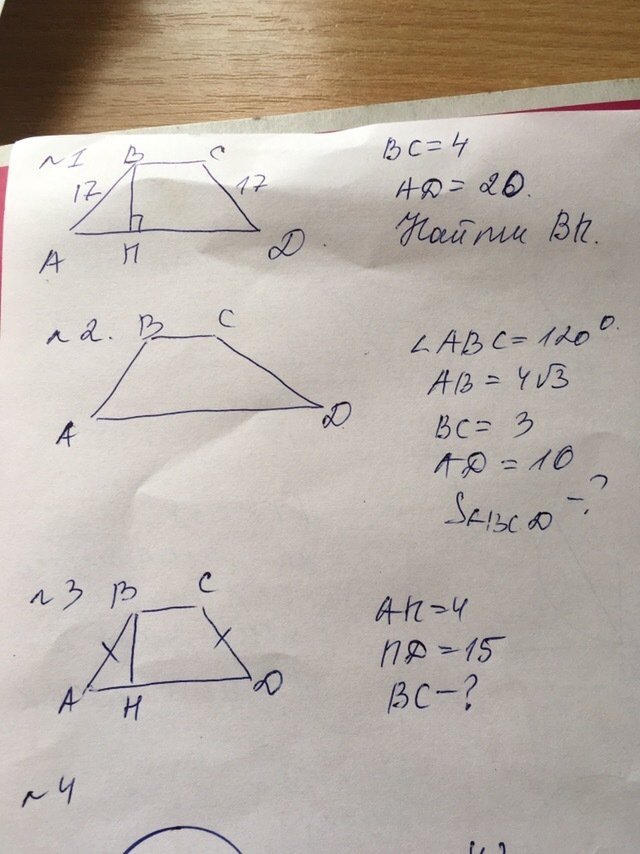 №1
B C
17 17
A H D
BC = 4
AD = 20.
Найти BH.
№2.
B C
A D
∠ABC = 120°.
AB = 4√3
BC = 3
AD = 10
SABCD - ?
№3
B C
A H D
AH = 4
HD = 15
BC - ?
№4